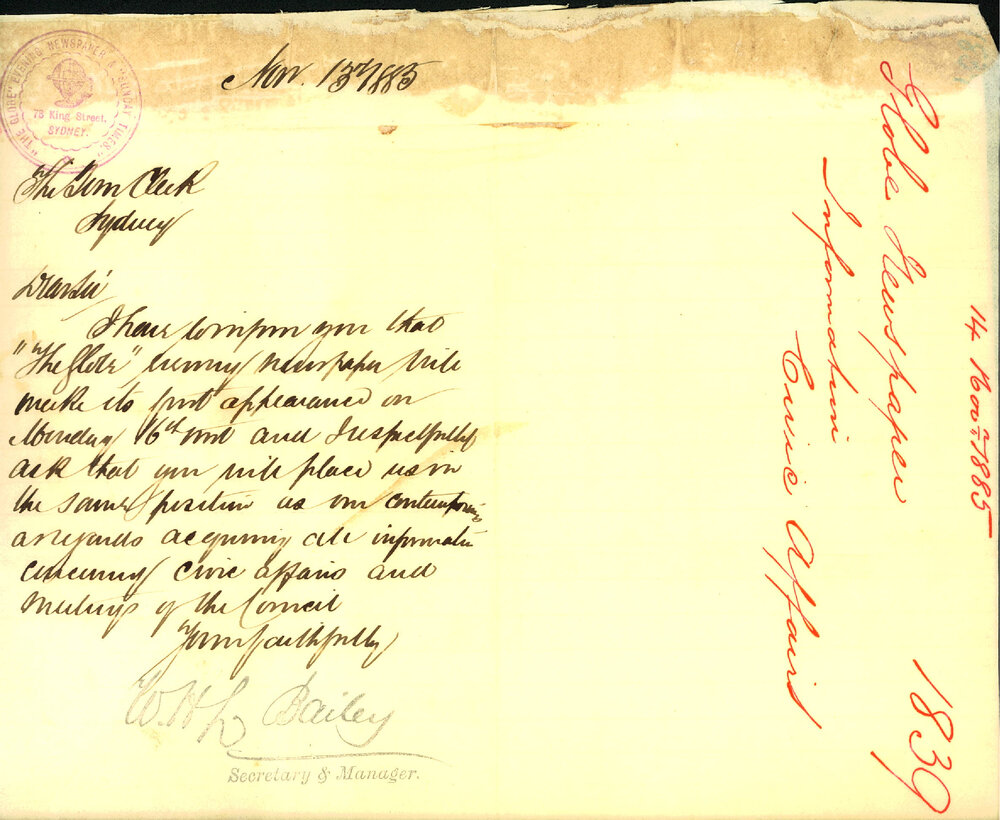 "THE GLOBE" EVENING NEWSPAPER & "SUNDAY TIMES."
73 King Street,
SYDNEY.
Nov. 13th 1885
The Town Clerk
Sydney
Dear Sir
I have to inform you that
"The Globe" evening newspaper will
make its first appearance on
Monday 16th inst and I respectfully
ask that you will place us in
the same position as our contemporaries
as regards acquiring all information
concerning civic affairs and
meetings of the Council
Yours faithfully
W. H. L. Bailey
Secretary & Manager.
Globe Newspaper
Information
Civic Affairs
14 Novr. 1885
1839